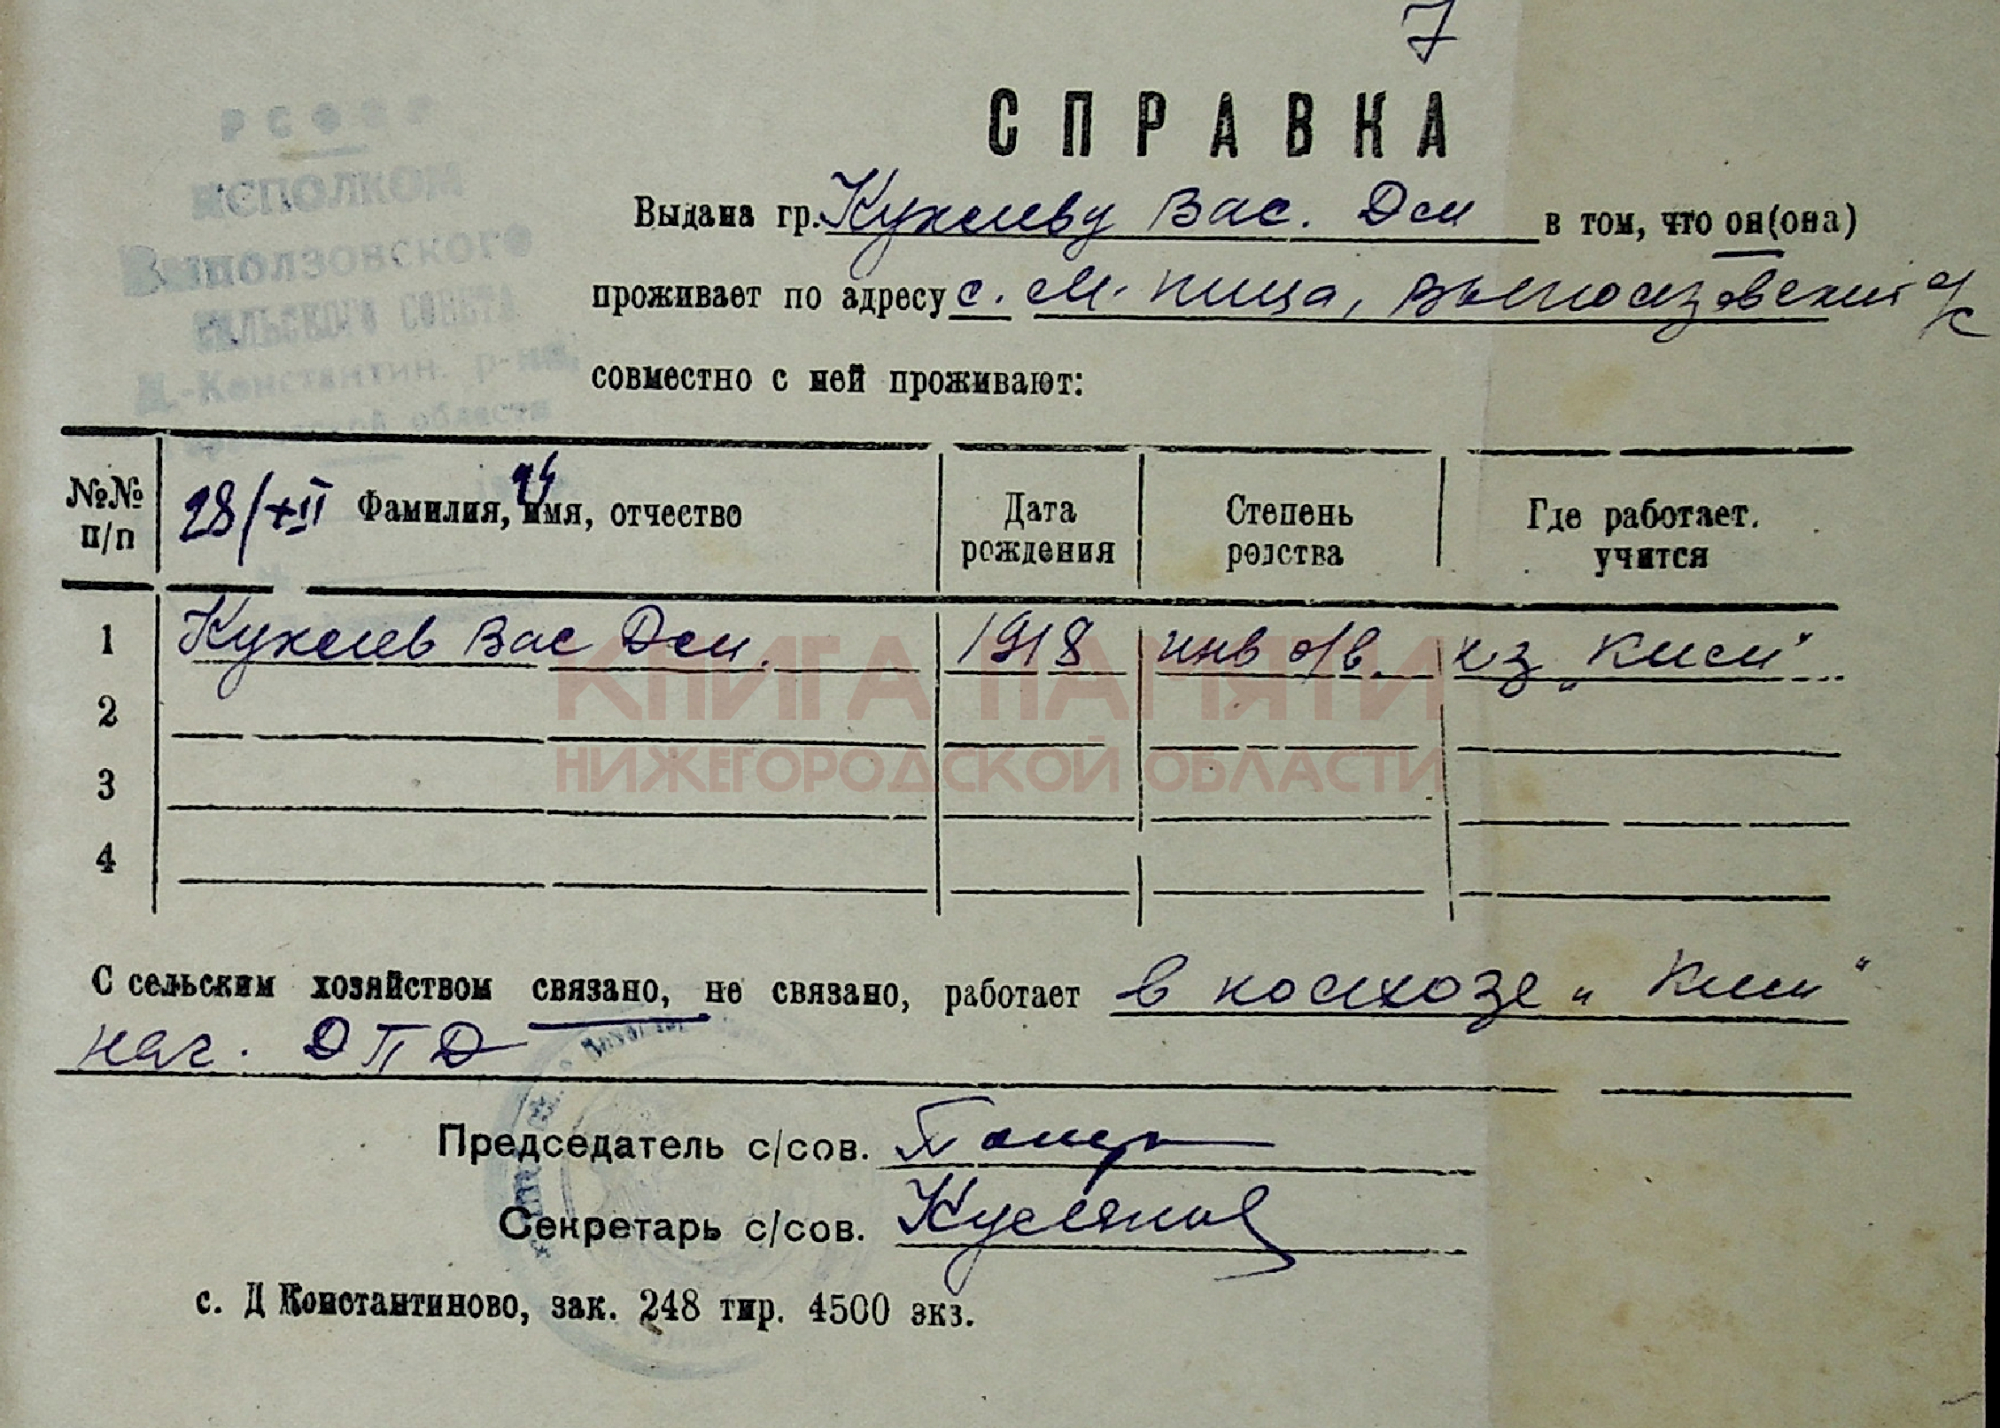 7
РСФСР
ИСПОЛКОМ
Выползовского
СЕЛЬСКОГО СОВЕТА
Д.-Константин. р-на,
области
СПРАВКА
Выдана гр. Куклеву Вас. Дм в том, что он(она)
проживает по адресу с. М. пица, Выползовский с/с
совместно с ней проживают:
№№ п/п
28/XII Фамилия, имя, отчество
Дата рождения
Степень родства
Где работает. учится
1 Куклев Вас Дм. 1918 инв о/в. к-з „Ким"
2
3
4
КНИГА ПАМЯТИ
НИЖЕГОРОДСКОЙ ОБЛАСТИ
С сельским хозяйством связано, не связано, работает в колхозе „Ким"
нач. ДПД
Председатель с/сов.
Секретарь с/сов.
с. Д Константиново, зак. 248 тир. 4500 экз.